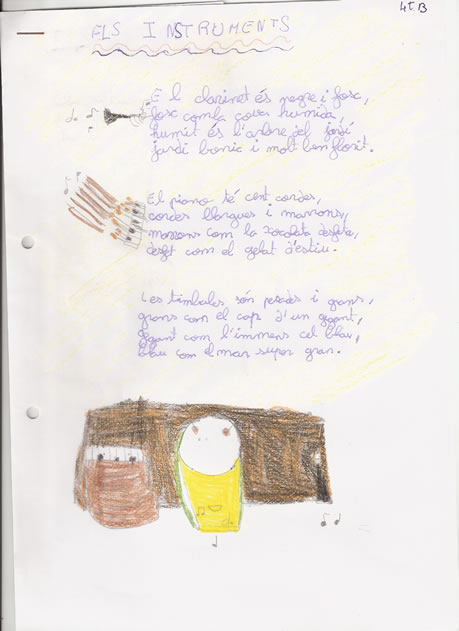 4t B
ELS INSTRUMENTS
El clarinet és negre i fosc,
fosc com la cova humida,
humit és l'arbre del jardí
jardí bonic i molt ben florit.
El piano té cent cordes,
cordes llargues i marrons,
marrons com la xocolata desfeta,
desfet com el gelat d'estiu.
Les timbales són pesades i grans,
grans com el cap d'un gegant,
gegant com l'immens cel blau,
blau com el mar super gran.